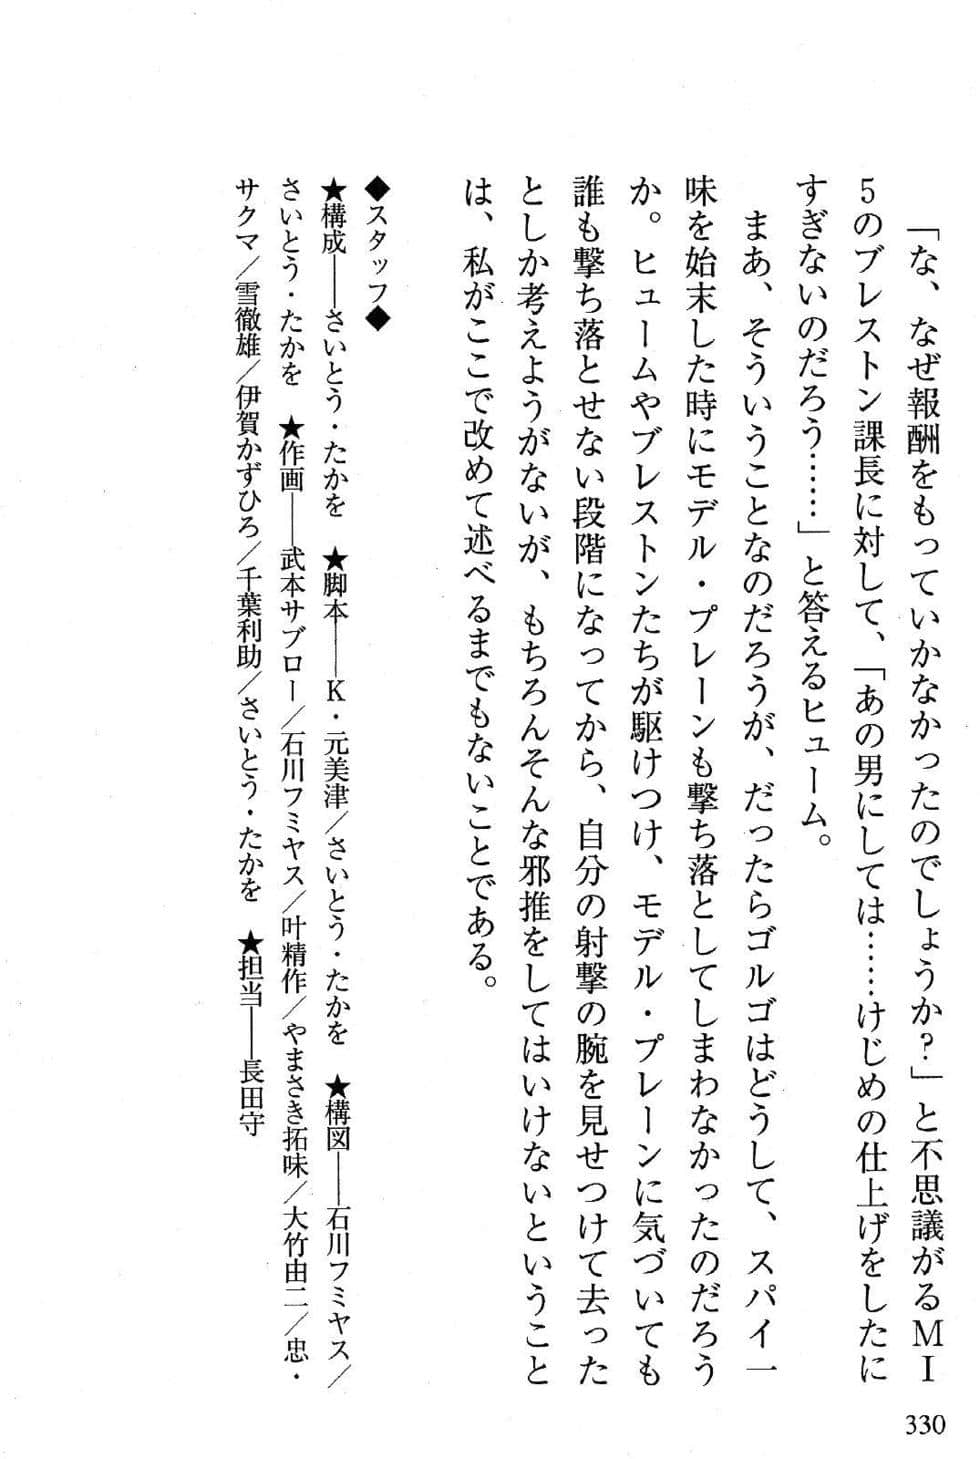 「な、なぜ報酬をもっていかなかったのでしょうか?」と不思議がるMI
5のブレストン課長に対して、「あの男にしては……けじめの仕上げをしたに
すぎないのだろう……」と答えるヒューム。
まあ、そういうことなのだろうが、だったらゴルゴはどうして、スパイ一
味を始末した時にモデル・プレーンも撃ち落としてしまわなかったのだろう
か。ヒュームやブレストンたちが駆けつけ、モデル・プレーンに気づいても
誰も撃ち落とせない段階になってから、自分の射撃の腕を見せつけて去った
としか考えようがないが、もちろんそんな邪推をしてはいけないということ
は、私がここで改めて述べるまでもないことである。
◆スタッフ◆
★構成――さいとう・たかを ★脚本――K・元美津/さいとう・たかを ★構図――石川フミヤス/
さいとう・たかを ★作画――武本サブロー/石川フミヤス/叶精作/やまさき拓味/大竹由二/忠・
サクマ/雪徹雄/伊賀かずひろ/千葉利助/さいとう・たかを ★担当――長田守
330